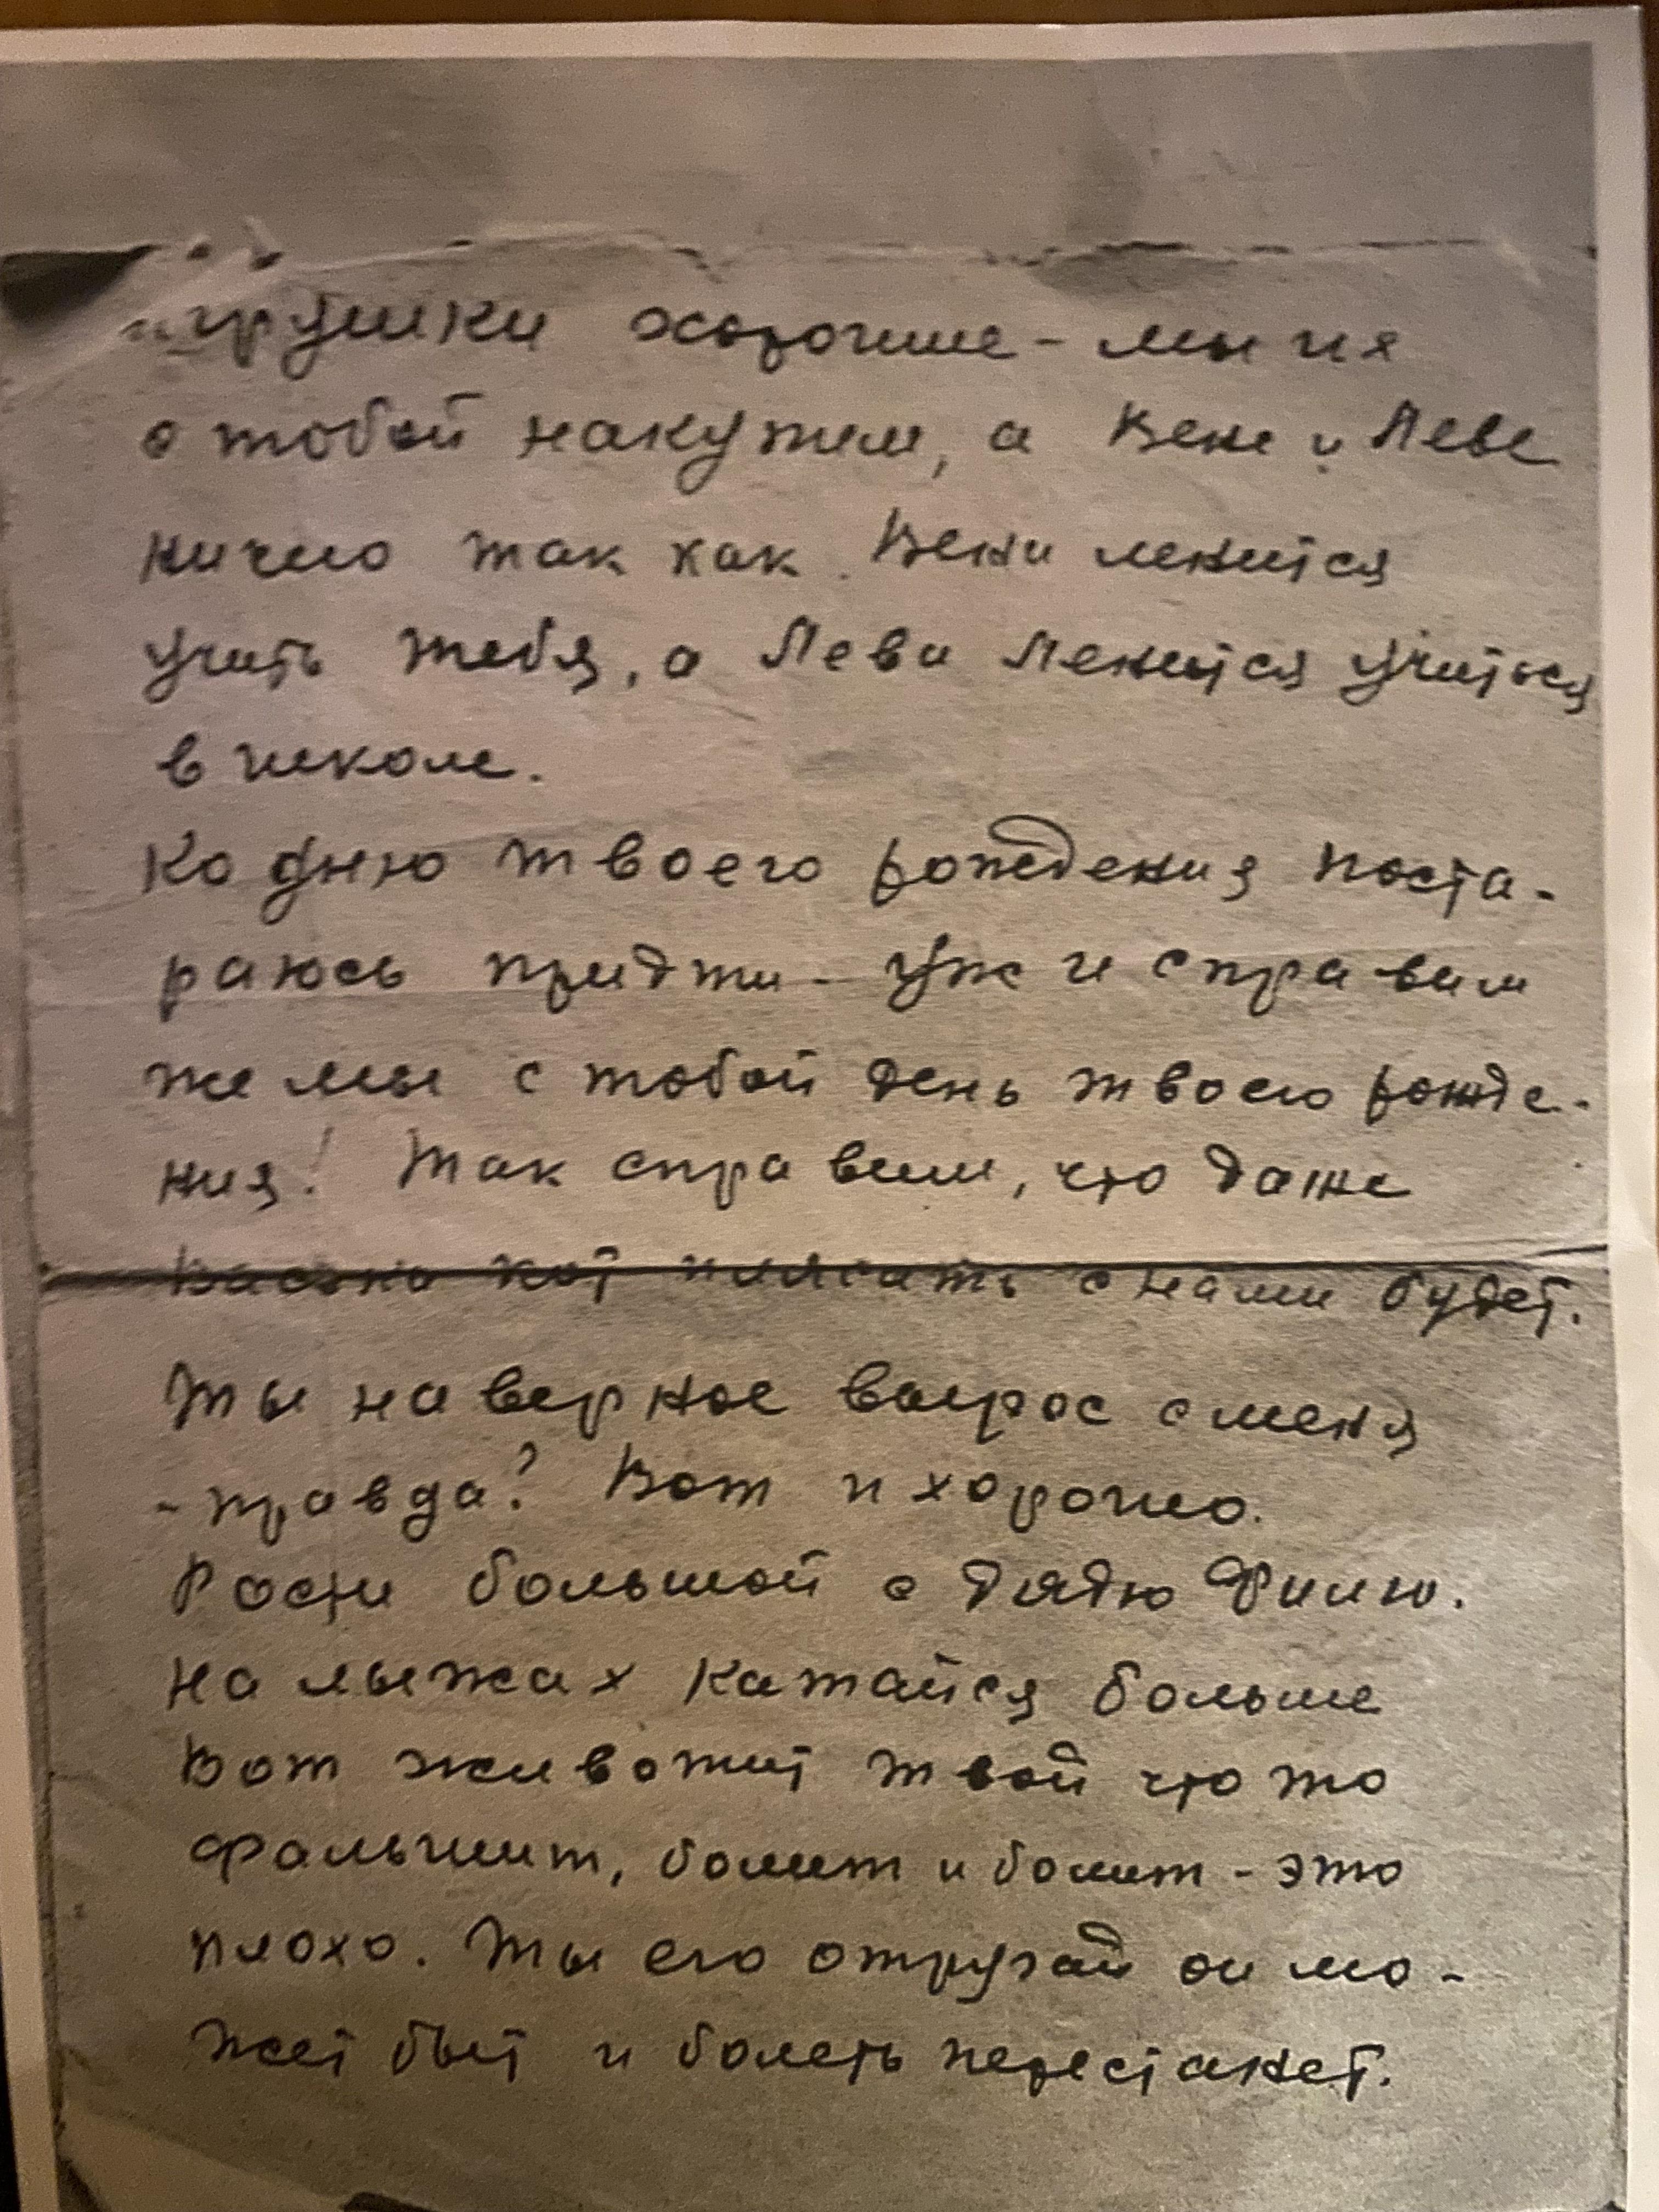 игрушки хорошие - мы их
с тобой накупим, а Вене и Леве
ничего так как Вени ленится
учить тебя, а Лева ленится учиться
в школе.
Ко дню твоего рождения поста-
раюсь придти - уж и справим
же мы с тобой день твоего рожде-
ния! Так справим, что даже
Васька кот плясать с нами будет.
Ты наверное вырос с меня
- правда? Вот и хорошо.
Расти большой с дядю Филю.
На лыжах катайся больше
Вот животит твой что то
фальшит, болит и болит - это
плохо. Ты его отругай он мо-
жет быт и болеть перестанет.